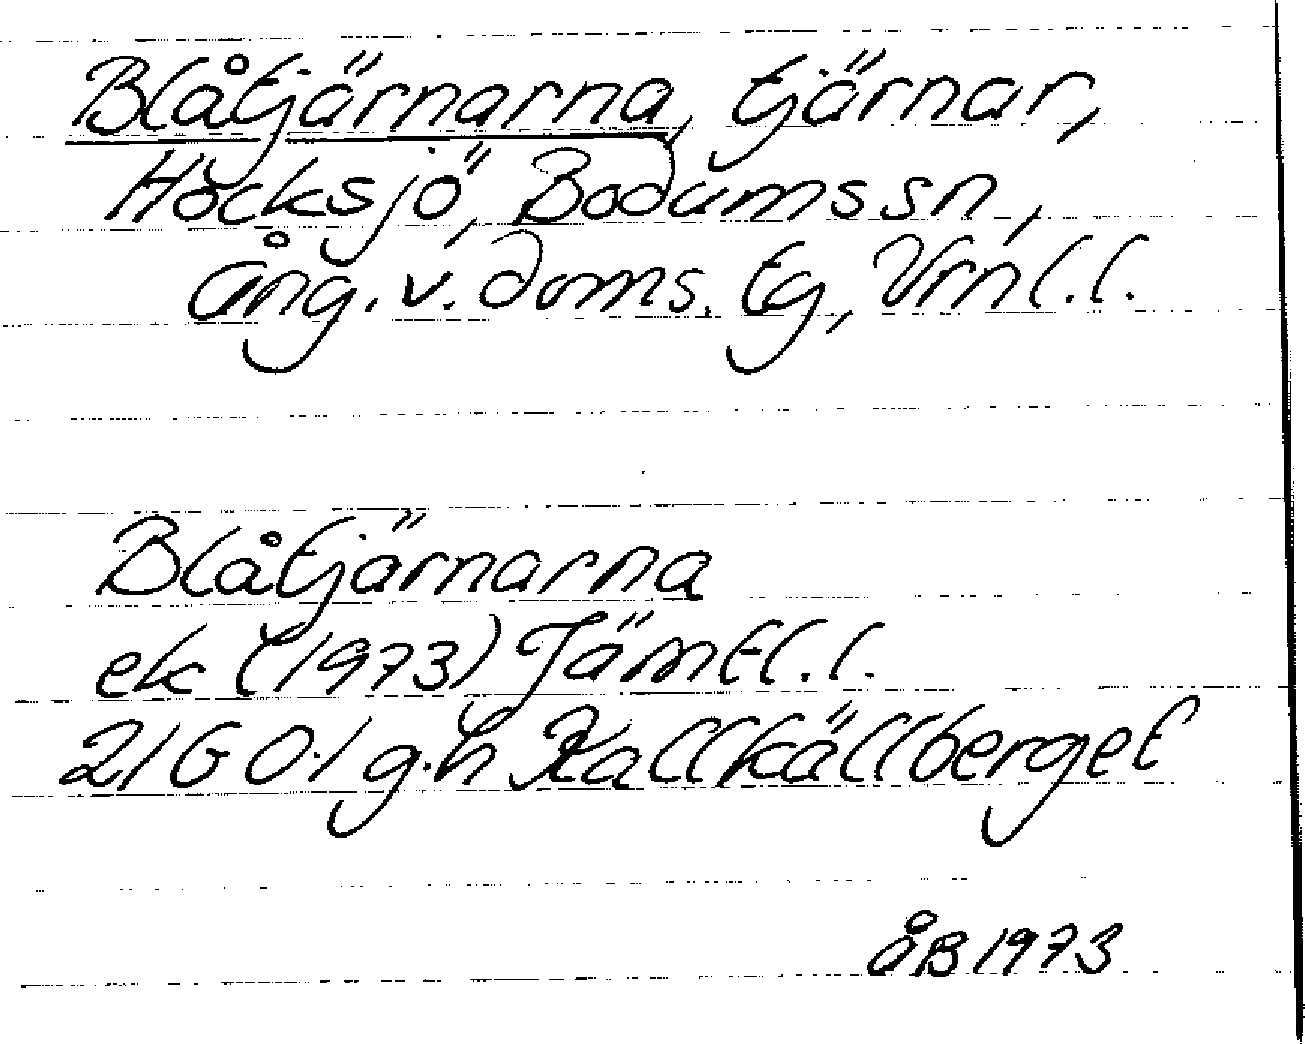 Blåtjärnarna, tjärnar,
Höcksjö, Bodums sn,
Ång. v. doms. tg, Vrnl. l.
Blåtjärnarna
ek (1973) Jämtl. l.
21G 0-1 g-h Kallkällberget
ÅB 1973